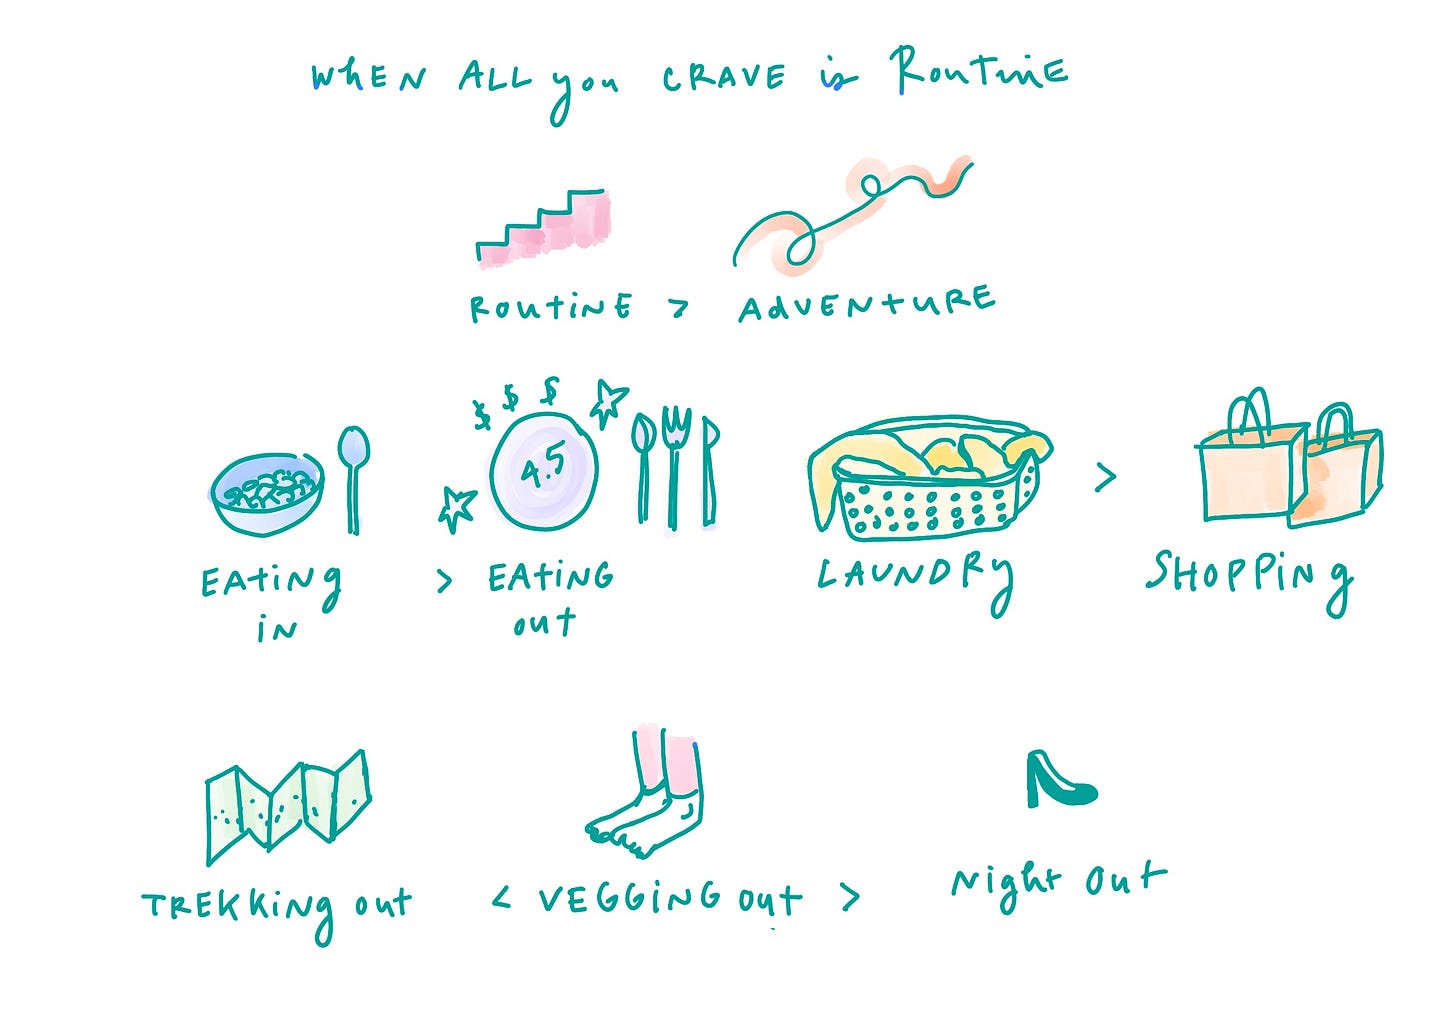 WhEN ALL you CRAVE is RoutinE
RoutiNE > AdVENtuRE
$ $ $
4.5
>
EAtiNg > EAtiNG LAUNDRy SHOPPiNg
iN out
TREKKiNg out < VEGGiNG out > Night out